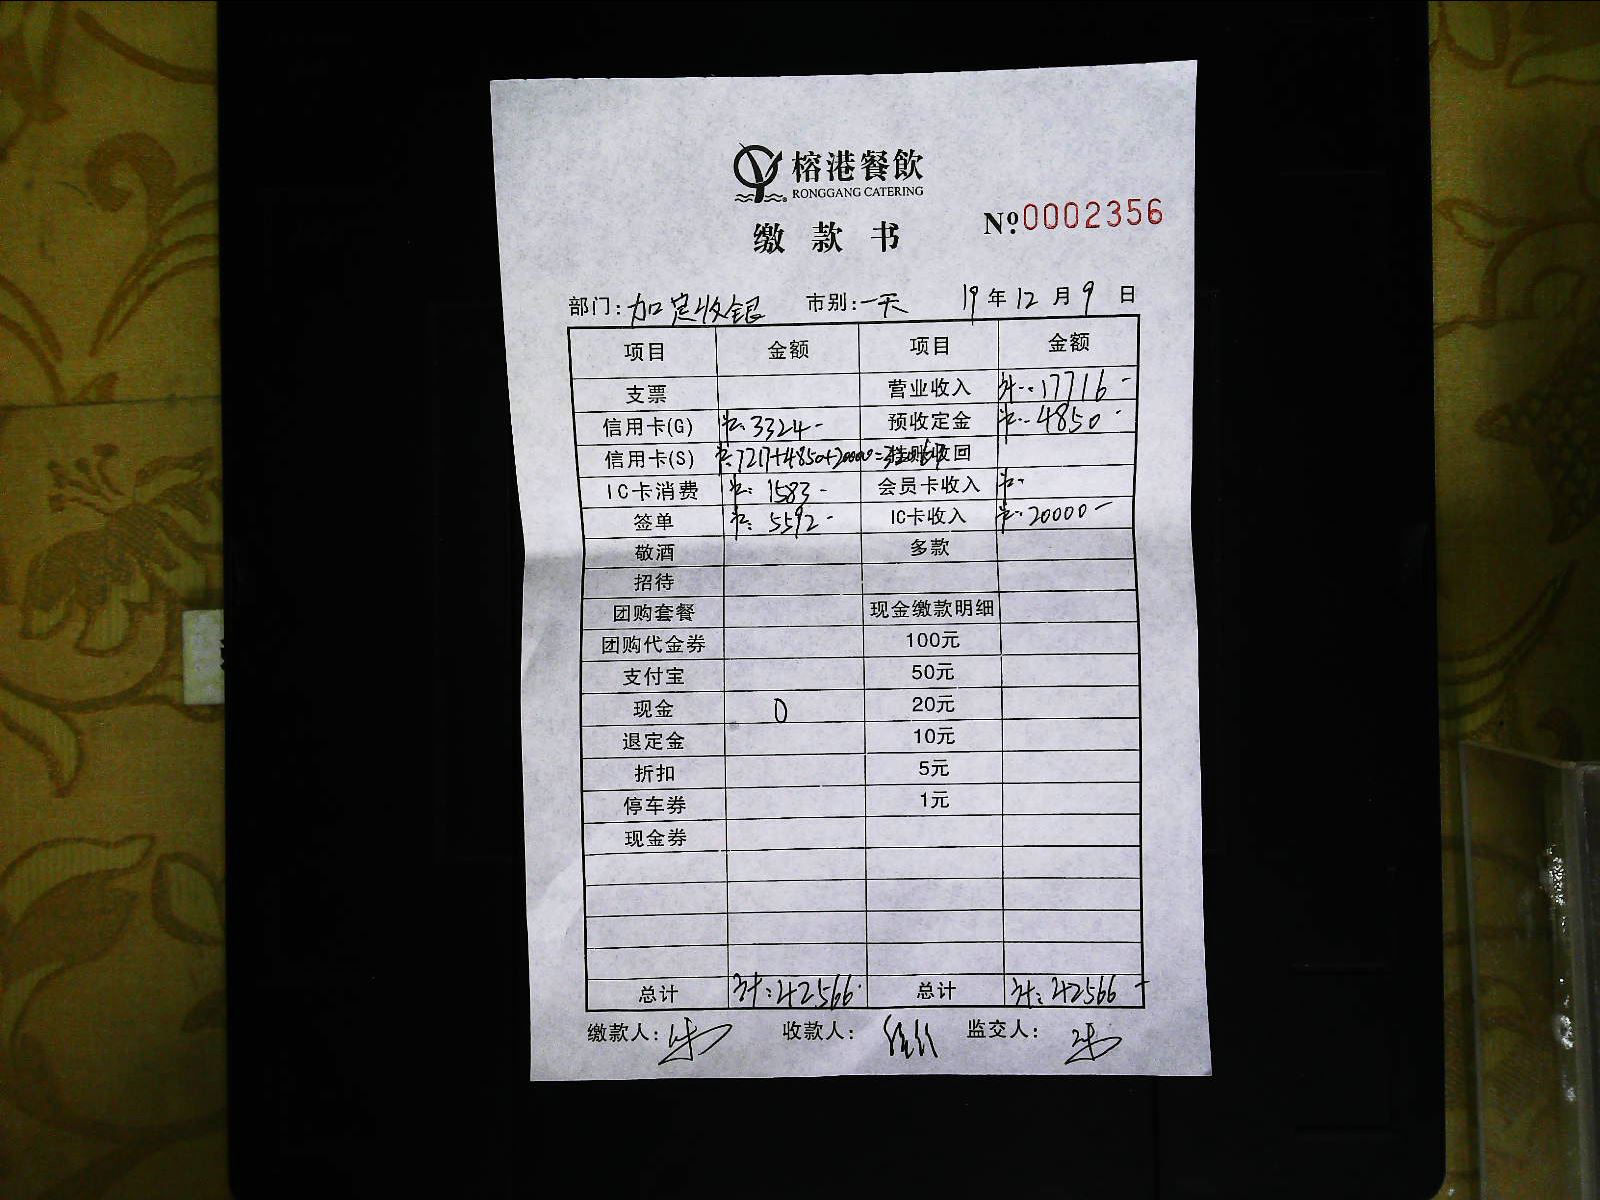 榕港餐飲
RONGGANG CATERING
缴款书
Nº 0002356
部门: 加定收银 市别: 一天 19年12月9日
项目 金额 项目 金额
支票 营业收入 计:17716-
信用卡(G) 计:3324- 预收定金 计:4850-
信用卡(S) 计:7217+4850+20000=32067 挂账收回
IC卡消费 计:1583- 会员卡收入 计:
签单 计:5592- IC卡收入 计:20000-
敬酒 多款
招待
团购套餐 现金缴款明细
团购代金券 100元
支付宝 50元
现金 0 20元
退定金 10元
折扣 5元
停车券 1元
现金券
总计 计:42566- 总计 计:42566-
缴款人: 收款人: 监交人: